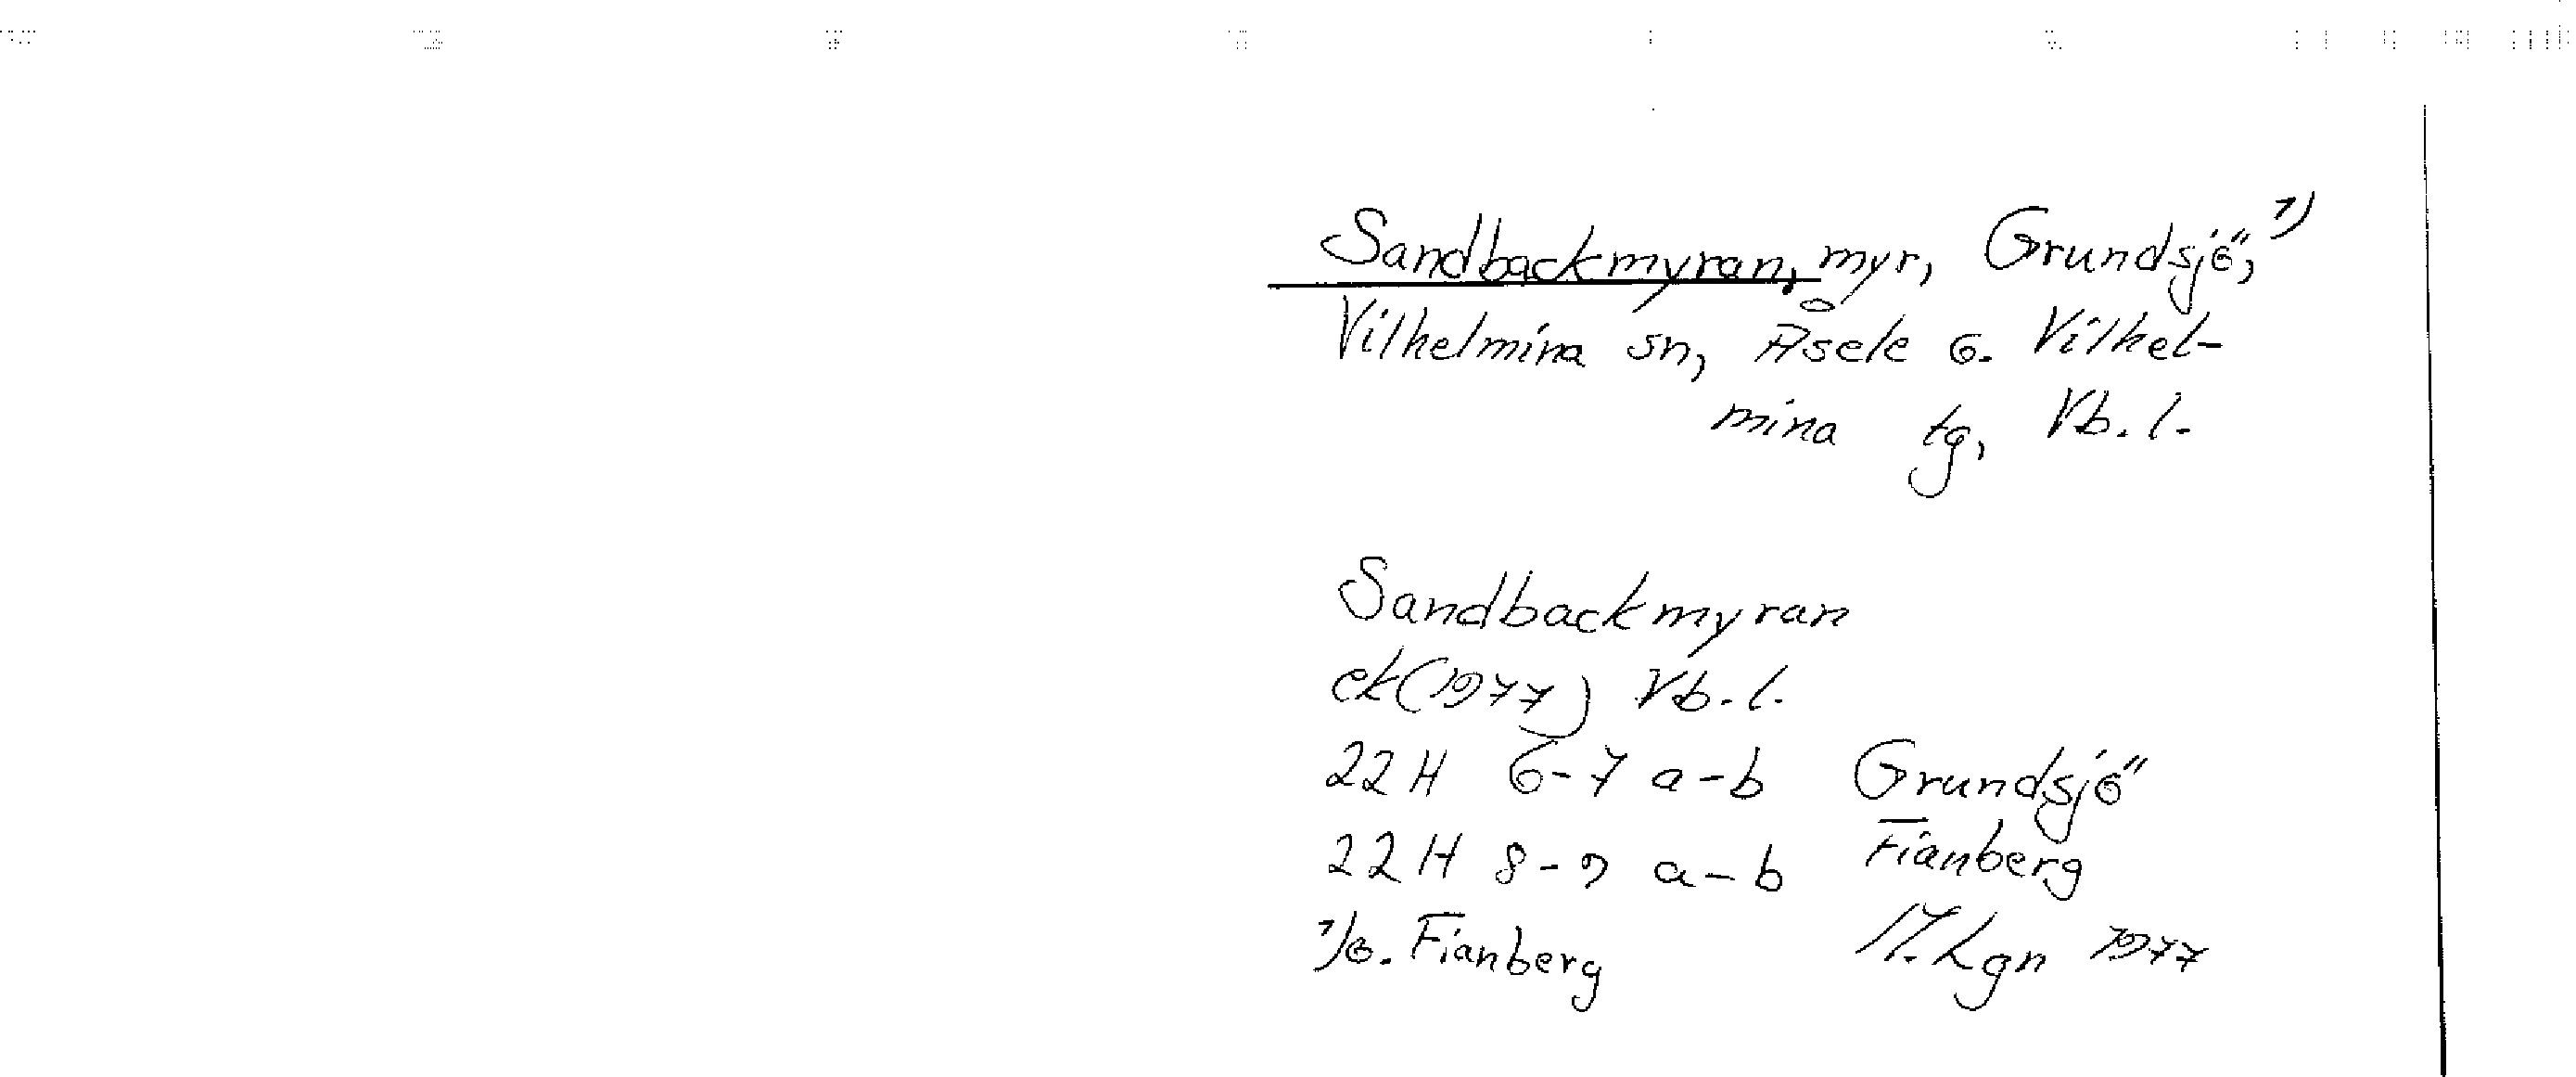 Sandbackmyran, myr, Grundsjö, 1)
Vilhelmina sn, Åsele o. Vilhel-
mina tg, Vb. l.
Sandbackmyran
ek (1977) Vb. l.
22 H 6-7 a-b Grundsjö
22 H 8-9 a-b Fianberg
1) o. Fianberg M. Lgn 1977